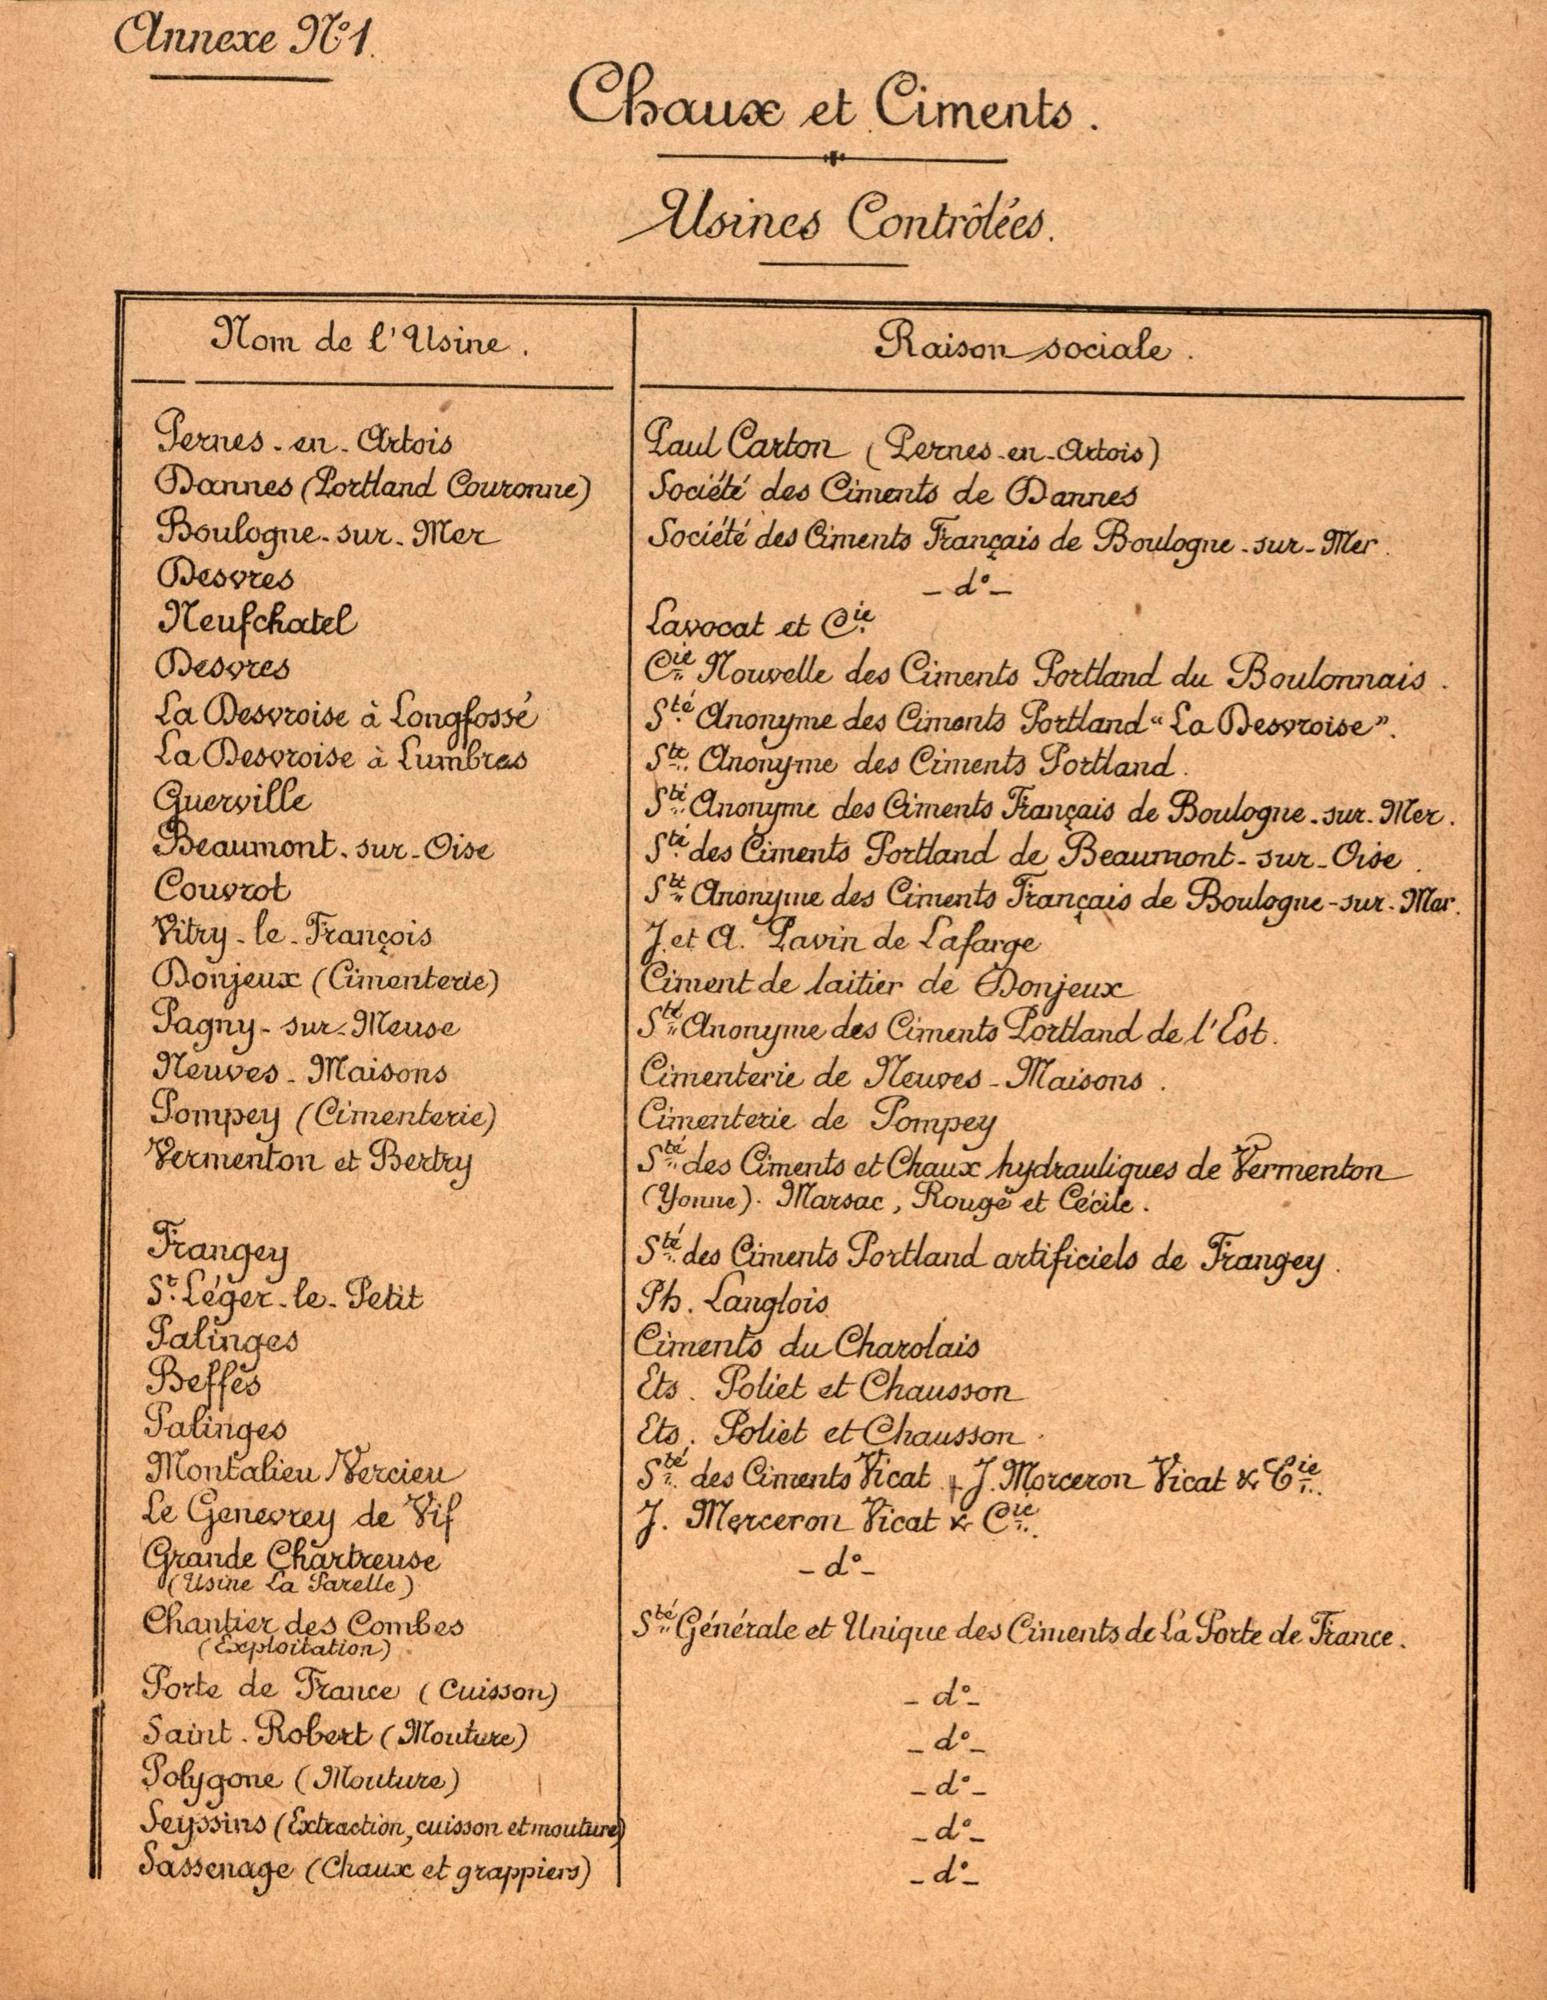 Annexe N°1.
Chaux et Ciments.
Usines Contrôlées.
Nom de l'Usine. Raison sociale.
Pernes-en-Artois Paul Carton (Pernes-en-Artois)
Dannes (Portland Couronne) Société des Ciments de Dannes
Boulogne-sur-Mer Société des Ciments Français de Boulogne-sur-Mer.
Desvres - d° -
Neufchatel Lavocat et Cie
Desvres Cie Nouvelle des Ciments Portland du Boulonnais.
La Desvroise à Longfossé Sté Anonyme des Ciments Portland "La Desvroise".
La Desvroise à Lumbres Sté Anonyme des Ciments Portland.
Guerville Sté Anonyme des Ciments Français de Boulogne-sur-Mer.
Beaumont-sur-Oise Sté des Ciments Portland de Beaumont-sur-Oise.
Couvrot Sté Anonyme des Ciments Français de Boulogne-sur-Mer.
Vitry-le-François J. et A. Pavin de Lafarge
Donjeux (Cimenterie) Ciment de laitier de Donjeux
Pagny-sur-Meuse Sté Anonyme des Ciments Portland de l'Est.
Neuves-Maisons Cimenterie de Neuves-Maisons.
Pompey (Cimenterie) Cimenterie de Pompey
Vermenton et Bertry Sté des Ciments et Chaux hydrauliques de Vermenton
(Yonne). Marsac, Rougé et Cécile.
Frangey Sté des Ciments Portland artificiels de Frangey.
St Léger-le-Petit Ph. Langlois
Palinges Ciments du Charolais
Beffes Ets. Poliet et Chausson
Palinges Ets. Poliet et Chausson
Montalieu Vercieu Sté des Ciments Vicat J. Merceron Vicat & Cie.
Le Genevrey de Vif J. Merceron Vicat & Cie.
Grande Chartreuse - d° -
(Usine La Parelle)
Chantier des Combes Sté Générale et Unique des Ciments de La Porte de France.
(Exploitation)
Porte de France (Cuisson) - d° -
Saint-Robert (Mouture) - d° -
Polygone (Mouture) - d° -
Seyssins (Extraction, cuisson et mouture) - d° -
Sassenage (Chaux et grappiers) - d° -